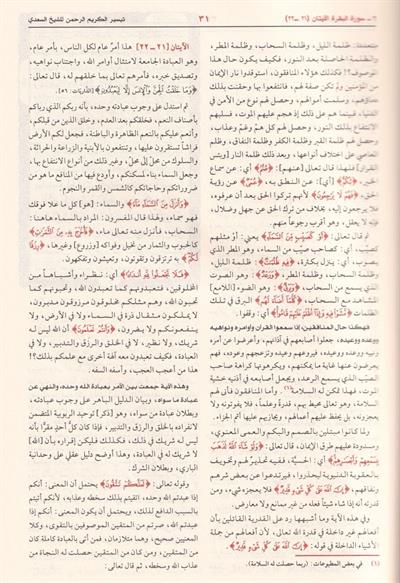 ٢ - سورة البقرة، الآيتان (٢١ - ٢٢)
٣١
تيسير الكريم الرحمن للشيخ السعدي
متعددة: ظلمة الليل، وظلمة السحاب، وظلمة المطر،
والظلمة الحاصلة بعد النور، فكيف يكون حال هذا
الموصوف؟! فكذلك هؤلاء المنافقون، استوقدوا نار الإيمان
من المؤمنين ولم تكن صفة لهم، فانتفعوا بها وحقنت بذلك
دماؤهم، وسلمت أموالهم، وحصل لهم نوع من الأمن في
الدنيا، فبينما هم على ذلك إذ هجم عليهم الموت، فسلبهم
الانتفاع بذلك النور، وحصل لهم كل هم وغم وعذاب،
وحصل لهم ظلمة القبر وظلمة الكفر وظلمة النفاق، وظلم
المعاصي على اختلاف أنواعها، وبعد ذلك ظلمة النار (وبئس
القرار). فلهذا قال تعالى [عنهم]: ﴿صُمٌّ﴾ [أي]: عن سماع
الخير، ﴿بُكْمٌ﴾ [أي]: عن النطق به، ﴿عُمْيٌ﴾ عن رؤية
الحق، ﴿فَهُمْ لَا يَرْجِعُونَ﴾ لأنهم تركوا الحق بعد أن عرفوه،
فلا يرجعون إليه، بخلاف من ترك الحق عن جهل وضلال،
فإنه لا يعقل، وهو أقرب رجوعاً منهم.
ثم قال تعالى: ﴿أَوْ كَصَيِّبٍ مِنَ السَّمَاءِ﴾ يعني: أو مثلهم
كصيّب، أي: كصاحب صيب من السماء، وهو المطر الذي
يصوب، أي: ينزل بكثرة، ﴿فِيهِ ظُلُمَاتٌ﴾: ظلمة الليل،
وظلمة السحاب، وظلمة المطر، ﴿وَرَعْدٌ﴾: وهو الصوت
الذي يسمع من السحاب، ﴿وَبَرْقٌ﴾: وهو الضوء [اللامع]
المشاهد مع السحاب. ﴿كُلَّمَا أَضَاءَ لَهُمْ﴾ البرق في تلك
الظلمات ﴿مَشَوْا فِيهِ وَإِذَا أَظْلَمَ عَلَيْهِمْ قَامُوا﴾ أي: وقفوا.
فهكذا حال المنافقين، إذا سمعوا القرآن وأوامره ونواهيه
ووعده ووعيده، جعلوا أصابعهم في آذانهم، وأعرضوا عن أمره
ونهيه ووعده ووعيده، فيروعهم وعيده وتزعجهم وعوده، فهم
يعرضون عنها غاية ما يمكنهم، ويكرهونها كراهة صاحب
الصيّب الذي يسمع الرعد، ويجعل أصابعه في أذنيه خشية
الموت، فهذا تمكن له السلامة(١). وأما المنافقون فأنى لهم
السلامة، وهو تعالى محيط بهم، قدرة وعلماً، فلا يفوتونه ولا
يعجزونه، بل يحفظ عليهم أعمالهم، ويجازيهم عليها أتم الجزاء.
ولما كانوا مبتلين بالصمم والبكم والعمى المعنوي،
ومسدودة عليهم طرق الإيمان، قال تعالى: ﴿وَلَوْ شَاءَ اللَّهُ لَذَهَبَ
بِسَمْعِهِمْ وَأَبْصَارِهِمْ﴾ أي: الحسية، ففيه تحذير لهم وتخويف
بالعقوبة الدنيوية ليحذروا، فيرتدعوا عن بعض شرهم
ونفاقهم، ﴿إِنَّ اللَّهَ عَلَى كُلِّ شَيْءٍ قَدِيرٌ﴾ فلا يعجزه شيء، ومن
قدرته أنه إذا شاء شيئاً فعله من غير ممانع ولا معارض.
وفي هذه الآية وما أشبهها رد على القدرية القائلين بأن
أفعالهم غير داخلة في قدرة الله تعالى، لأن أفعالهم من جملة
الأشياء الداخلة في قوله: ﴿إِنَّ اللَّهَ عَلَى كُلِّ شَيْءٍ قَدِيرٌ﴾.
(١) في بعض المطبوعات: (ربما حصلت له السلامة).
الآيتان (٢١ - ٢٢) هذا أمرٌ عام لكل الناس، بأمر عام،
وهو العبادة الجامعة لامتثال أوامر الله، واجتناب نواهيه،
وتصديق خبره، فأمرهم تعالى بما خلقهم له، قال تعالى:
﴿وَمَا خَلَقْتُ الْجِنَّ وَالْإِنْسَ إِلَّا لِيَعْبُدُونِ﴾ [الذاريات: ٥٦].
ثم استدل على وجوب عبادته وحده، بأنه ربكم الذي رباكم
بأصناف النعم، فخلقكم بعد العدم، وخلق الذين من قبلكم،
وأنعم عليكم بالنعم الظاهرة والباطنة، فجعل لكم الأرض
فراشاً تستقرون عليها، وتنتفعون بالأبنية والزراعة والحراثة،
والسلوك من محل إلى محل، وغير ذلك من أنواع الانتفاع بها،
وجعل السماء بناء لمسكنكم، وأودع فيها من المنافع ما هو من
ضروراتكم وحاجاتكم كالشمس والقمر والنجوم.
﴿وَأَنْزَلَ مِنَ السَّمَاءِ مَاءً﴾ والسماء: [هو] كل ما علا فوقك
فهو سماء، ولهذا قال المفسرون: المراد بالسماء هاهنا:
السحاب، فأنزل منه تعالى ماء، ﴿فَأَخْرَجَ بِهِ مِنَ الثَّمَرَاتِ﴾
كالحبوب والثمار من نخيل وفواكه [وزروع] وغيرها، ﴿رِزْقًا
لَكُمْ﴾ به ترتزقون وتقوتون، وتعيشون وتفكهون.
﴿فَلَا تَجْعَلُوا لِلَّهِ أَنْدَادًا﴾ أي: نظراء وأشباهاً من
المخلوقين، فتعبدونهم كما تعبدون الله، وتحبونهم كما
تحبون الله، وهم مثلكم مخلوقون مرزوقون مدبرون،
لا يملكون مثقال ذرة في السماء ولا في الأرض، ولا
ينفعونكم ولا يضرون، ﴿وَأَنْتُمْ تَعْلَمُونَ﴾ أن الله ليس له
شريك، ولا نظير، لا في الخلق والرزق والتدبير، ولا في
العبادة، فكيف تعبدون معه آلهة أخرى مع علمكم بذلك؟!
هذا من أعجب العجب، وأسفه السفه.
وهذه الآية جمعت بين الأمر بعبادة الله وحده، والنهي عن
عبادة ما سواه، وبيان الدليل الباهر على وجوب عبادته،
وبطلان عبادة من سواه، وهو [ذكر] توحيد الربوبية المتضمن
لانفراده بالخلق والرزق والتدبير، فإذا كان كل أحد مقرّاً بأنه
ليس له شريك في ذلك، فكذلك فليكن إقراره بأن [الله]
لا شريك له في العبادة، وهذا أوضح دليل عقلي على وحدانية
الباري، وبطلان الشرك.
وقوله تعالى: ﴿لَعَلَّكُمْ تَتَّقُونَ﴾ يحتمل أن المعنى: أنكم
إذا عبدتم الله وحده، اتقيتم بذلك سخطه وعذابه، لأنكم أتيتم
بالسبب الدافع لذلك، ويحتمل أن يكون المعنى: أنكم إذا
عبدتم الله، صرتم من المتقين الموصوفين بالتقوى، وكلا
المعنيين صحيح، وهما متلازمان، فمن أتى بالعبادة كاملة كان
من المتقين، ومن كان من المتقين حصلت له النجاة من
عذاب الله وسخطه، ثم قال تعالى: